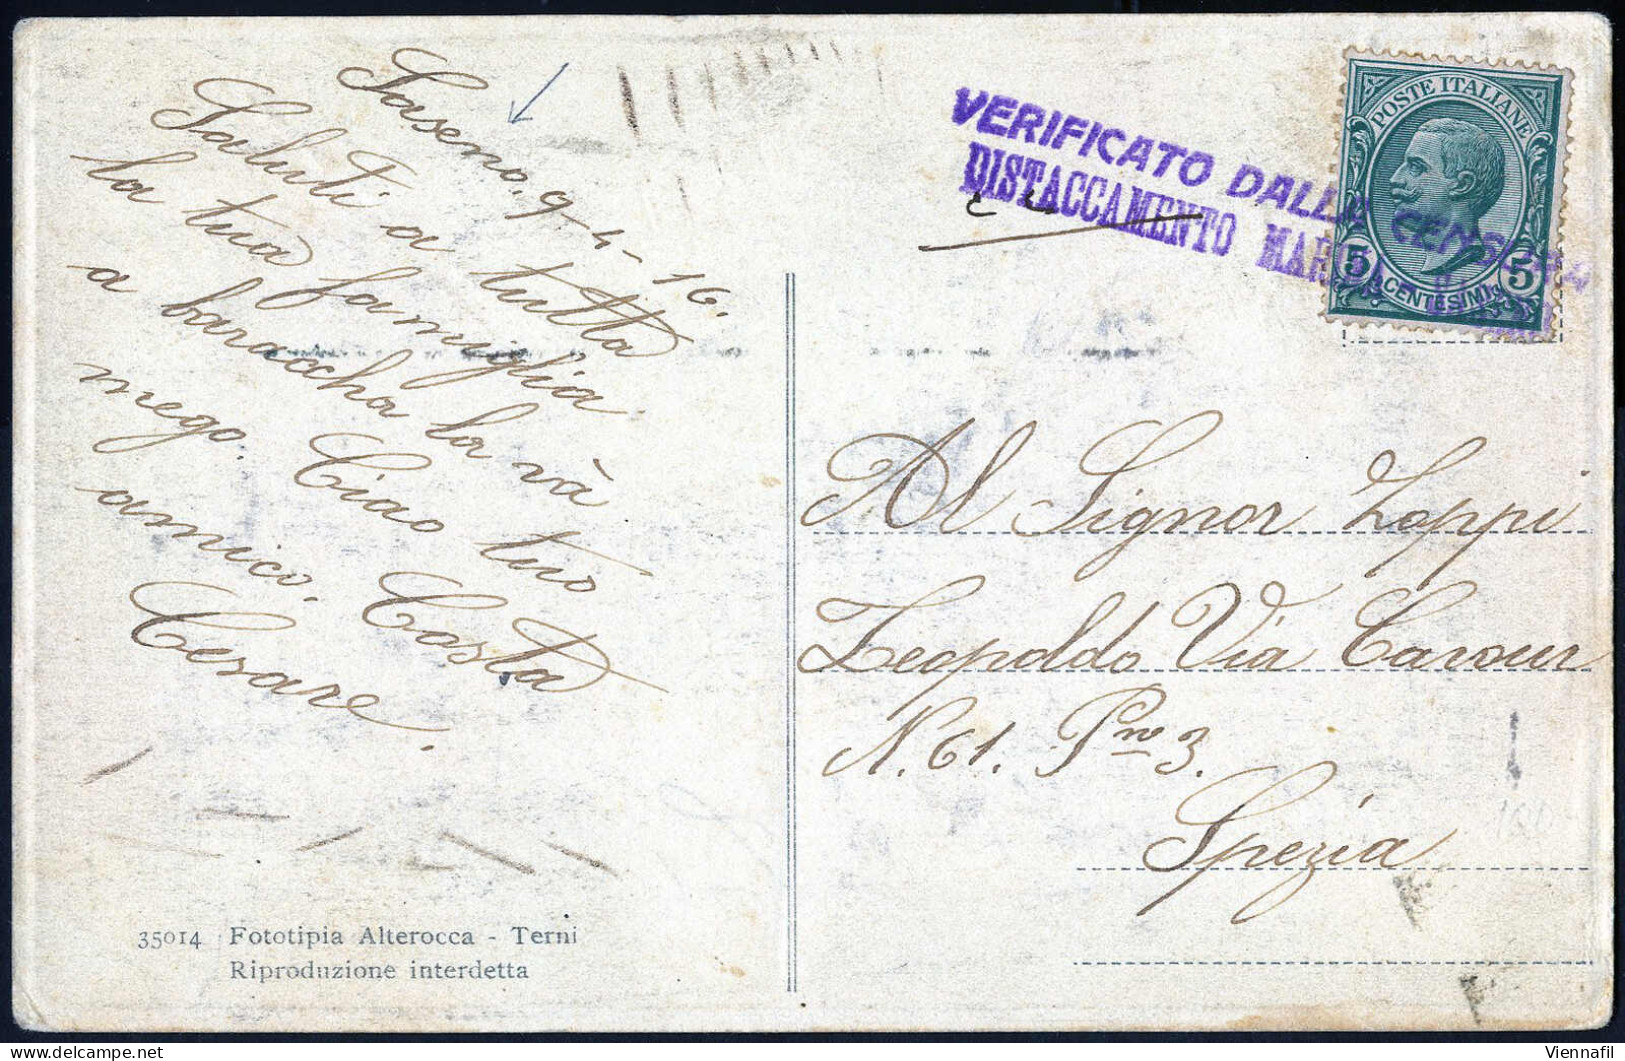 Saseno, 9-4-16.
Saluti a tutta
la tua famiglia
a baracha la và
mego. Ciao tuo
amico, Costa
Cesare.
35014 Fototipia Alterocca - Terni
Riproduzione interdetta
VERIFICATO DALLA CENSURA
DISTACCAMENTO MARINA
POSTE ITALIANE
5 CENTESIMI 5
Al Signor Zoppi
Leopoldo Via Cavour
N. 61. Pno 3.
Spezia
Viennafil